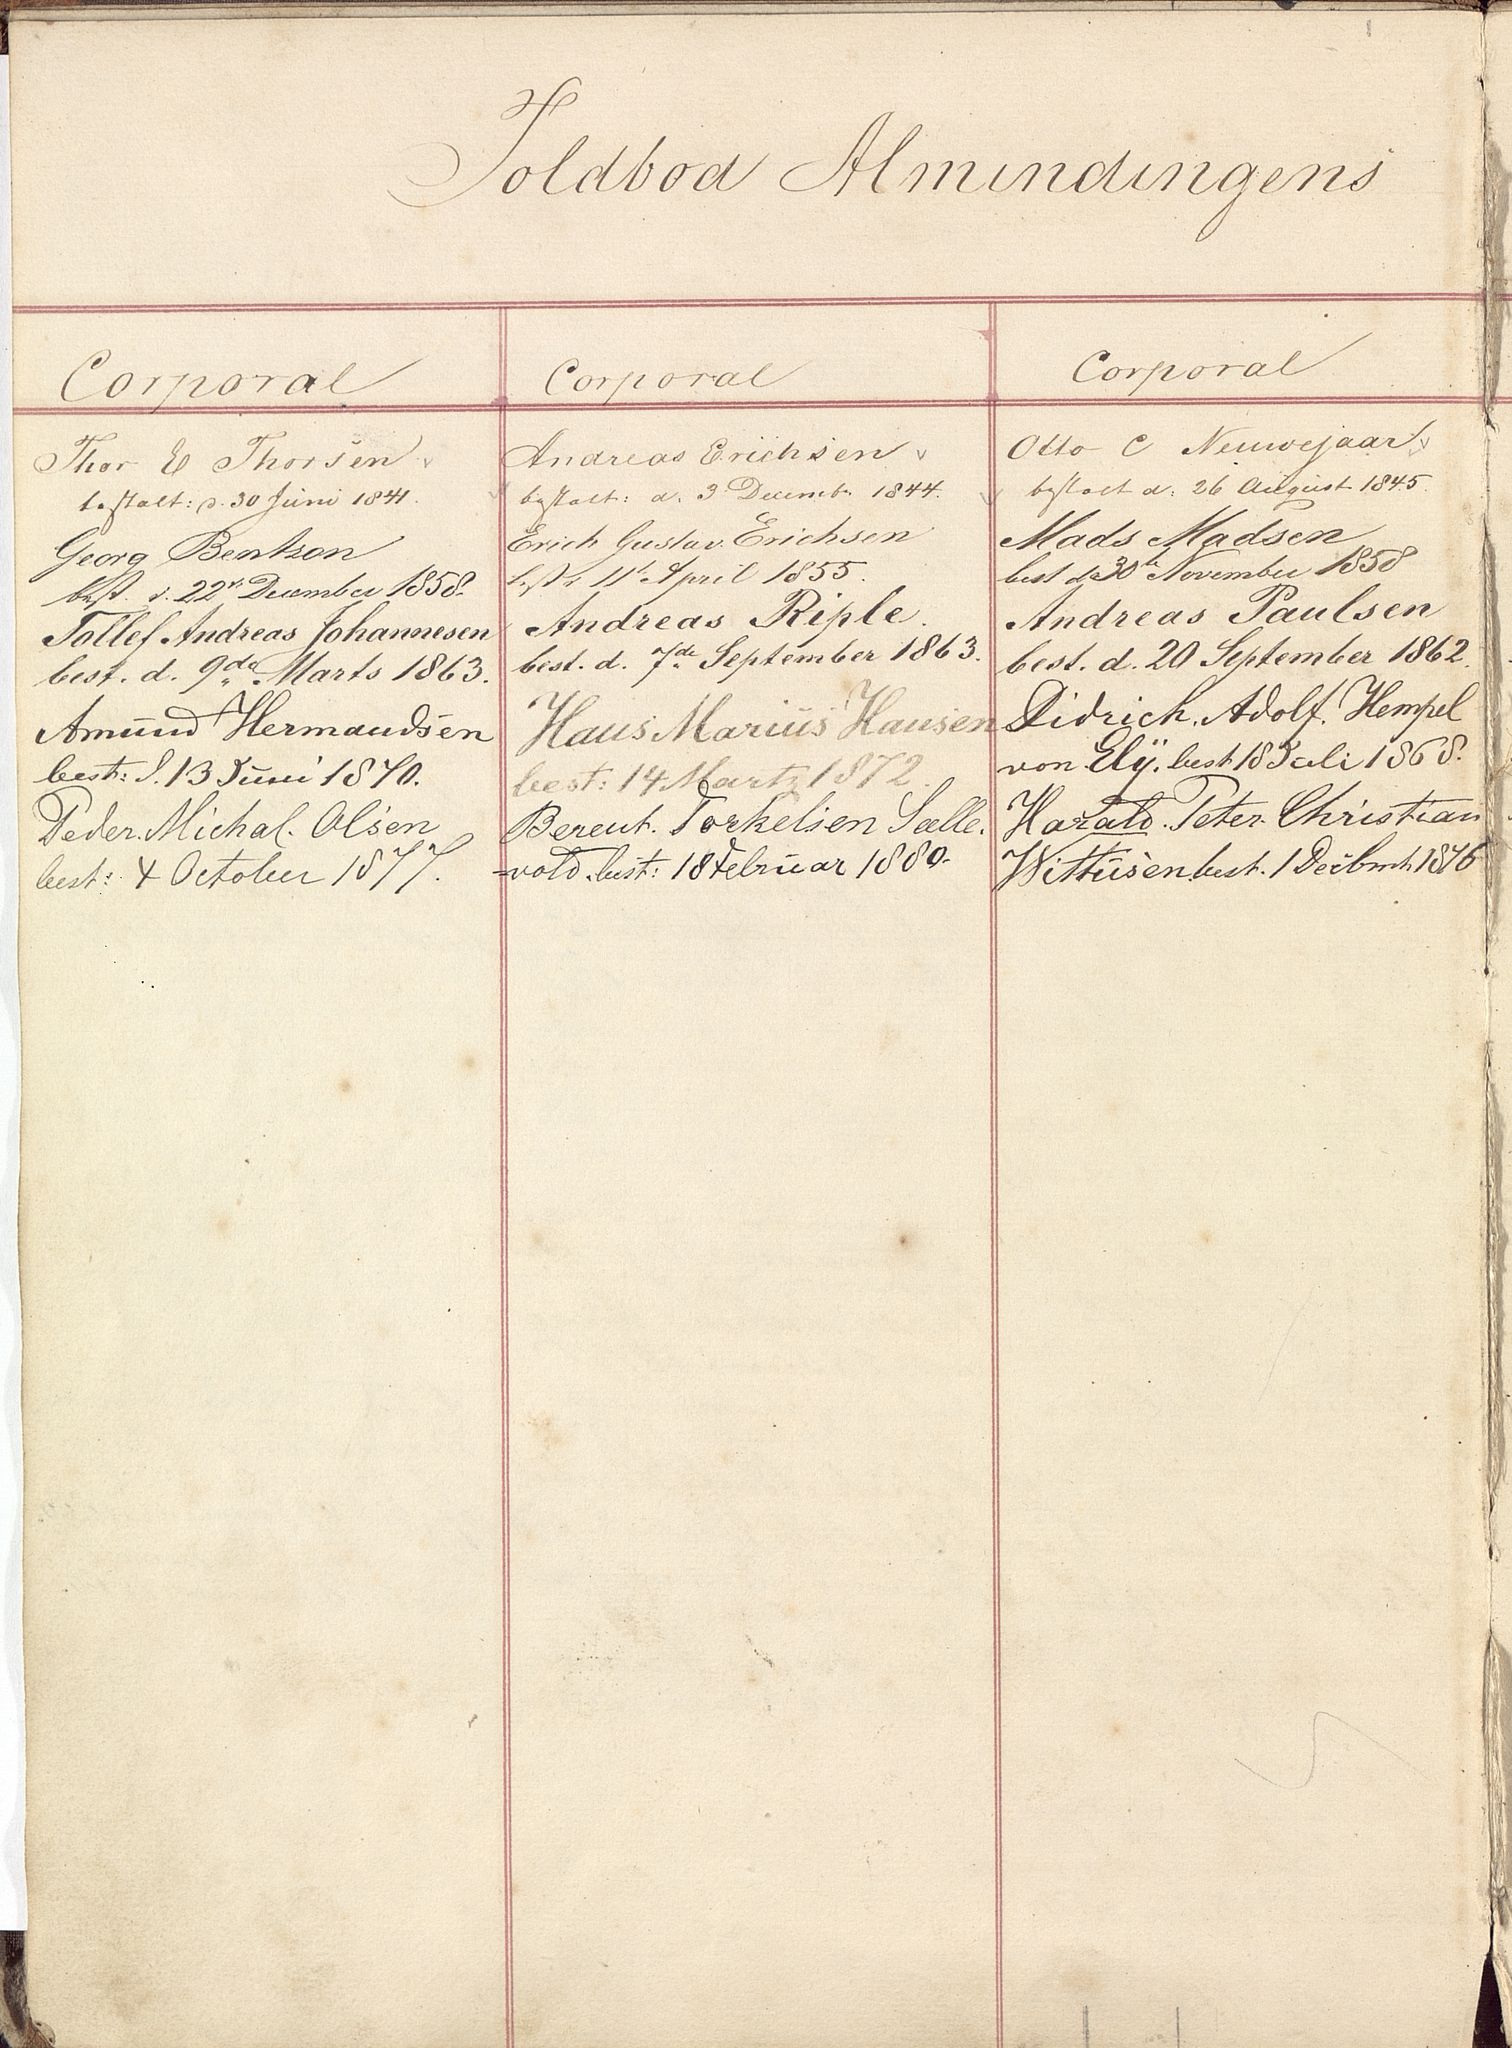 Toldbod Almindingens
Corporal
Thor E Thorsen
bestalt: d. 30 Juni 1841.
Georg Bentzon
best. d. 22de December 1858.
Tollef Andreas Johannesen
best. d. 9de Marts 1863.
Amund Hermandsen
best: d. 13 Juni 1870.
Peder. Michal. Olsen
best: 4 October 1877.
Corporal
Andreas Erichsen
bestalt: d. 3 Decembr 1844.
Erich Gustav Erichsen
best. 11te April 1855.
Andreas Riple.
best. d. 7de September 1863.
Hans Marius Hansen
best: 14 Marts 1872.
Berent. Torkelsen Sælle.
-vold. best: 18 Februar 1880.
Corporal
Otto C Neuwejaar
bestalt d: 26 August 1845.
Mads Madsen
best d 30te November 1858
Andreas Paulsen
best. d. 20 September 1862.
Didrich. Adolf. Hempel
von Ely. best 18 Juli 1868.
Harald. Peter. Christian
Wittusen best. 1 Decbmb. 1876